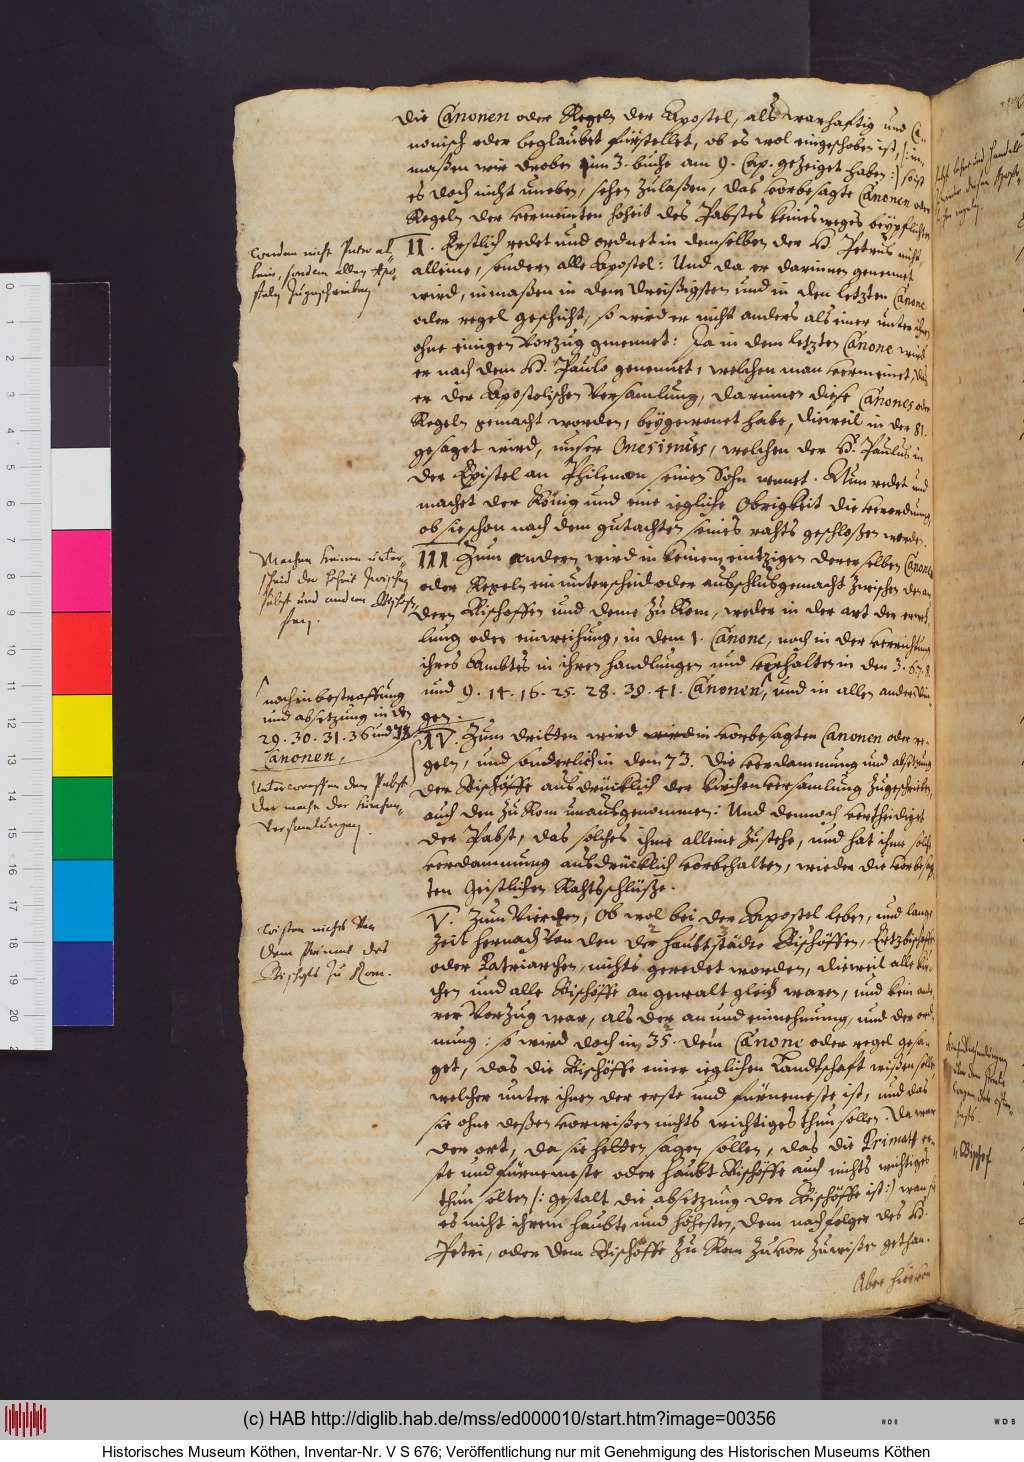 die Canonen oder Regeln der Apostel, als warhaftig und Ca-
nonisch oder beglaubet fürstellet, ob es wol eingeschoben ist, /: in-
maßen wir droben im 3. buche am 9. Cap. gezeiget haben :/ so ist
es doch nicht uneben, sehen zulaßen, das vorbesagte Canonen oder
Regeln der vermeinten hoheit des Pabstes keines weges beypflichten
werden nicht Petro al-
lein, sondern allen Apo-
steln zugeschrieben
II. Erstlich redet und ordnet in denselben der H. Petrus nicht
alleine, sondern alle Apostel: Und da er darinnen genennet
wird, inmaßen in dem dreißigsten und in den letzten Canone
oder regel geschicht, so wird er nicht anders als einer unter ihnen
ohne einigen vorzug genennet: Ja in dem letzten Canone wird
er nach dem H. Paulo genennet, welchen man vermeinet, das
er der Apostolischen versamlung, darinnen diese Canones oder
Regeln gemacht worden, beygewonet habe, dieweil in der 81.
gesaget wird, unser Onesimus, welchen der H. Paulus in
der Epistel an Philemon seinen Sohn nennet. Nun redet und
machet der König und eine iegliche Obrigkeit die verordnung,
ob sie schon nach dem gutachten seines rahts geschloßen werden.
Machen keinen unter-
scheid der hoheit zwischen
Pabst und andern Bischof-
fen.
III Zum andern wird in keinem eintzigen derer selben Canonen
oder Regeln ein unterscheid oder ausschlus gemacht zwischen den an-
dern Bischoffen und deme zu Rom, weder in der art der erweh-
lung oder einweihung, in dem 1. Canone, noch in der verrichtung
ihres Ambtes in ihren handlungen und verhalten in den 3. 6. 7. 8.
und 9. 14. 16. 25. 28. 39. 41. Canonen, und in allen andern din-
gen.
noch in bestraffung
und absetzung in den
29. 30. 31. 36 und
Canonen,
IV. Zum dritten wird wird in vorbesagten Canonen oder re-
geln, und sonderlich in dem 73. die verdammung und absetzung
der Bischöffe ausdrücklich der kirchenversamlung zugeschrieben,
auch den zu Rom unausgenommen: Und dennoch vertheidiget
der Pabst, das solches ihme alleine zustehe, und hat ihme solche
verdammung ausdrücklich vorbehalten, wieder die vorbesag-
ten Geistlichen Rahtsschlüße.
Unterwerffen den Pabst
der macht der kirchen-
versamlungen.
V. Zum Vierden, Ob wol bei der Apostel leben, und lange
zeit hernach von den der haubtstädte Bischöffen, Ertzbischoffen
oder Patriarchen, nichts geredet worden, dieweil alle kir-
chen und alle Bischöffe an gewalt gleich waren, und kein ande-
rer vorzug war, als der an und einnehmung, und der ord-
nung: so wird doch im 35. dem Canone oder regel gesa-
get, das die Bischöffe einer ieglichen Landtschaft wißen sollen
welcher unter ihnen der erste und fürnemeste ist, und das
sie ohne deßen vorwißen nichts wichtiges thun sollen. Da war
der ort, da sie hetten sagen sollen, das die Primaten er-
ste und fürnemeste oder haubt Bischöffe auch nichts wichtiges
thun solten /: gestalt die absetzung der Bischöffe ist :/ wan sie
es nicht ihrem haubte und höhesten, dem nachfolger des H.
Petri, oder dem Bischoffe zu Rom zuvor zuwißen gethan.
wißen nichts von
dem Primat des
Bischofs zu Rom.
Aber hiervon
0
1
2
3
4
5
6
7
8
9
10
11
12
13
14
15
16
17
18
19
20
(c) HAB http://diglib.hab.de/mss/ed000010/start.htm?image=00356
WDB
WDB
Historisches Museum Köthen, Inventar-Nr. V S 676; Veröffentlichung nur mit Genehmigung des Historischen Museums Köthen